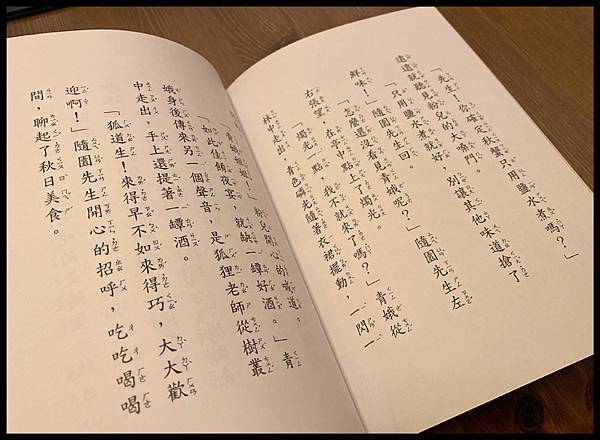 「先生！你確定秋蟹只用鹽水煮？」
遠遠就聽見粉兒的大嗓門。
「只用鹽水煮就好，別讓其他味道搶了
鮮味！」隨園先生回。
「怎麼還沒看見青娥呢？」隨園先生左
右張望，在亭中點上了燭光。
「燭光一點，我不就來了嗎？」青娥從
林中走出，青色磷光隨著衣裙擺動，一閃一
姐姐！」粉兒開心的喊道。
「如此佳餚夜宴，就缺一罈好酒。」青
娥身後傳來另一個聲音，是狐狸老師從樹叢
中走出，手上還提著一罈酒。
「狐道生！來得早不如來得巧，大大歡
迎啊！」隨園先生開心的招呼，吃吃喝喝
間，聊起了秋日美食。